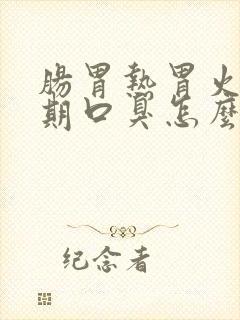 腸胃熱胃火
期口臭怎麼
纪念者